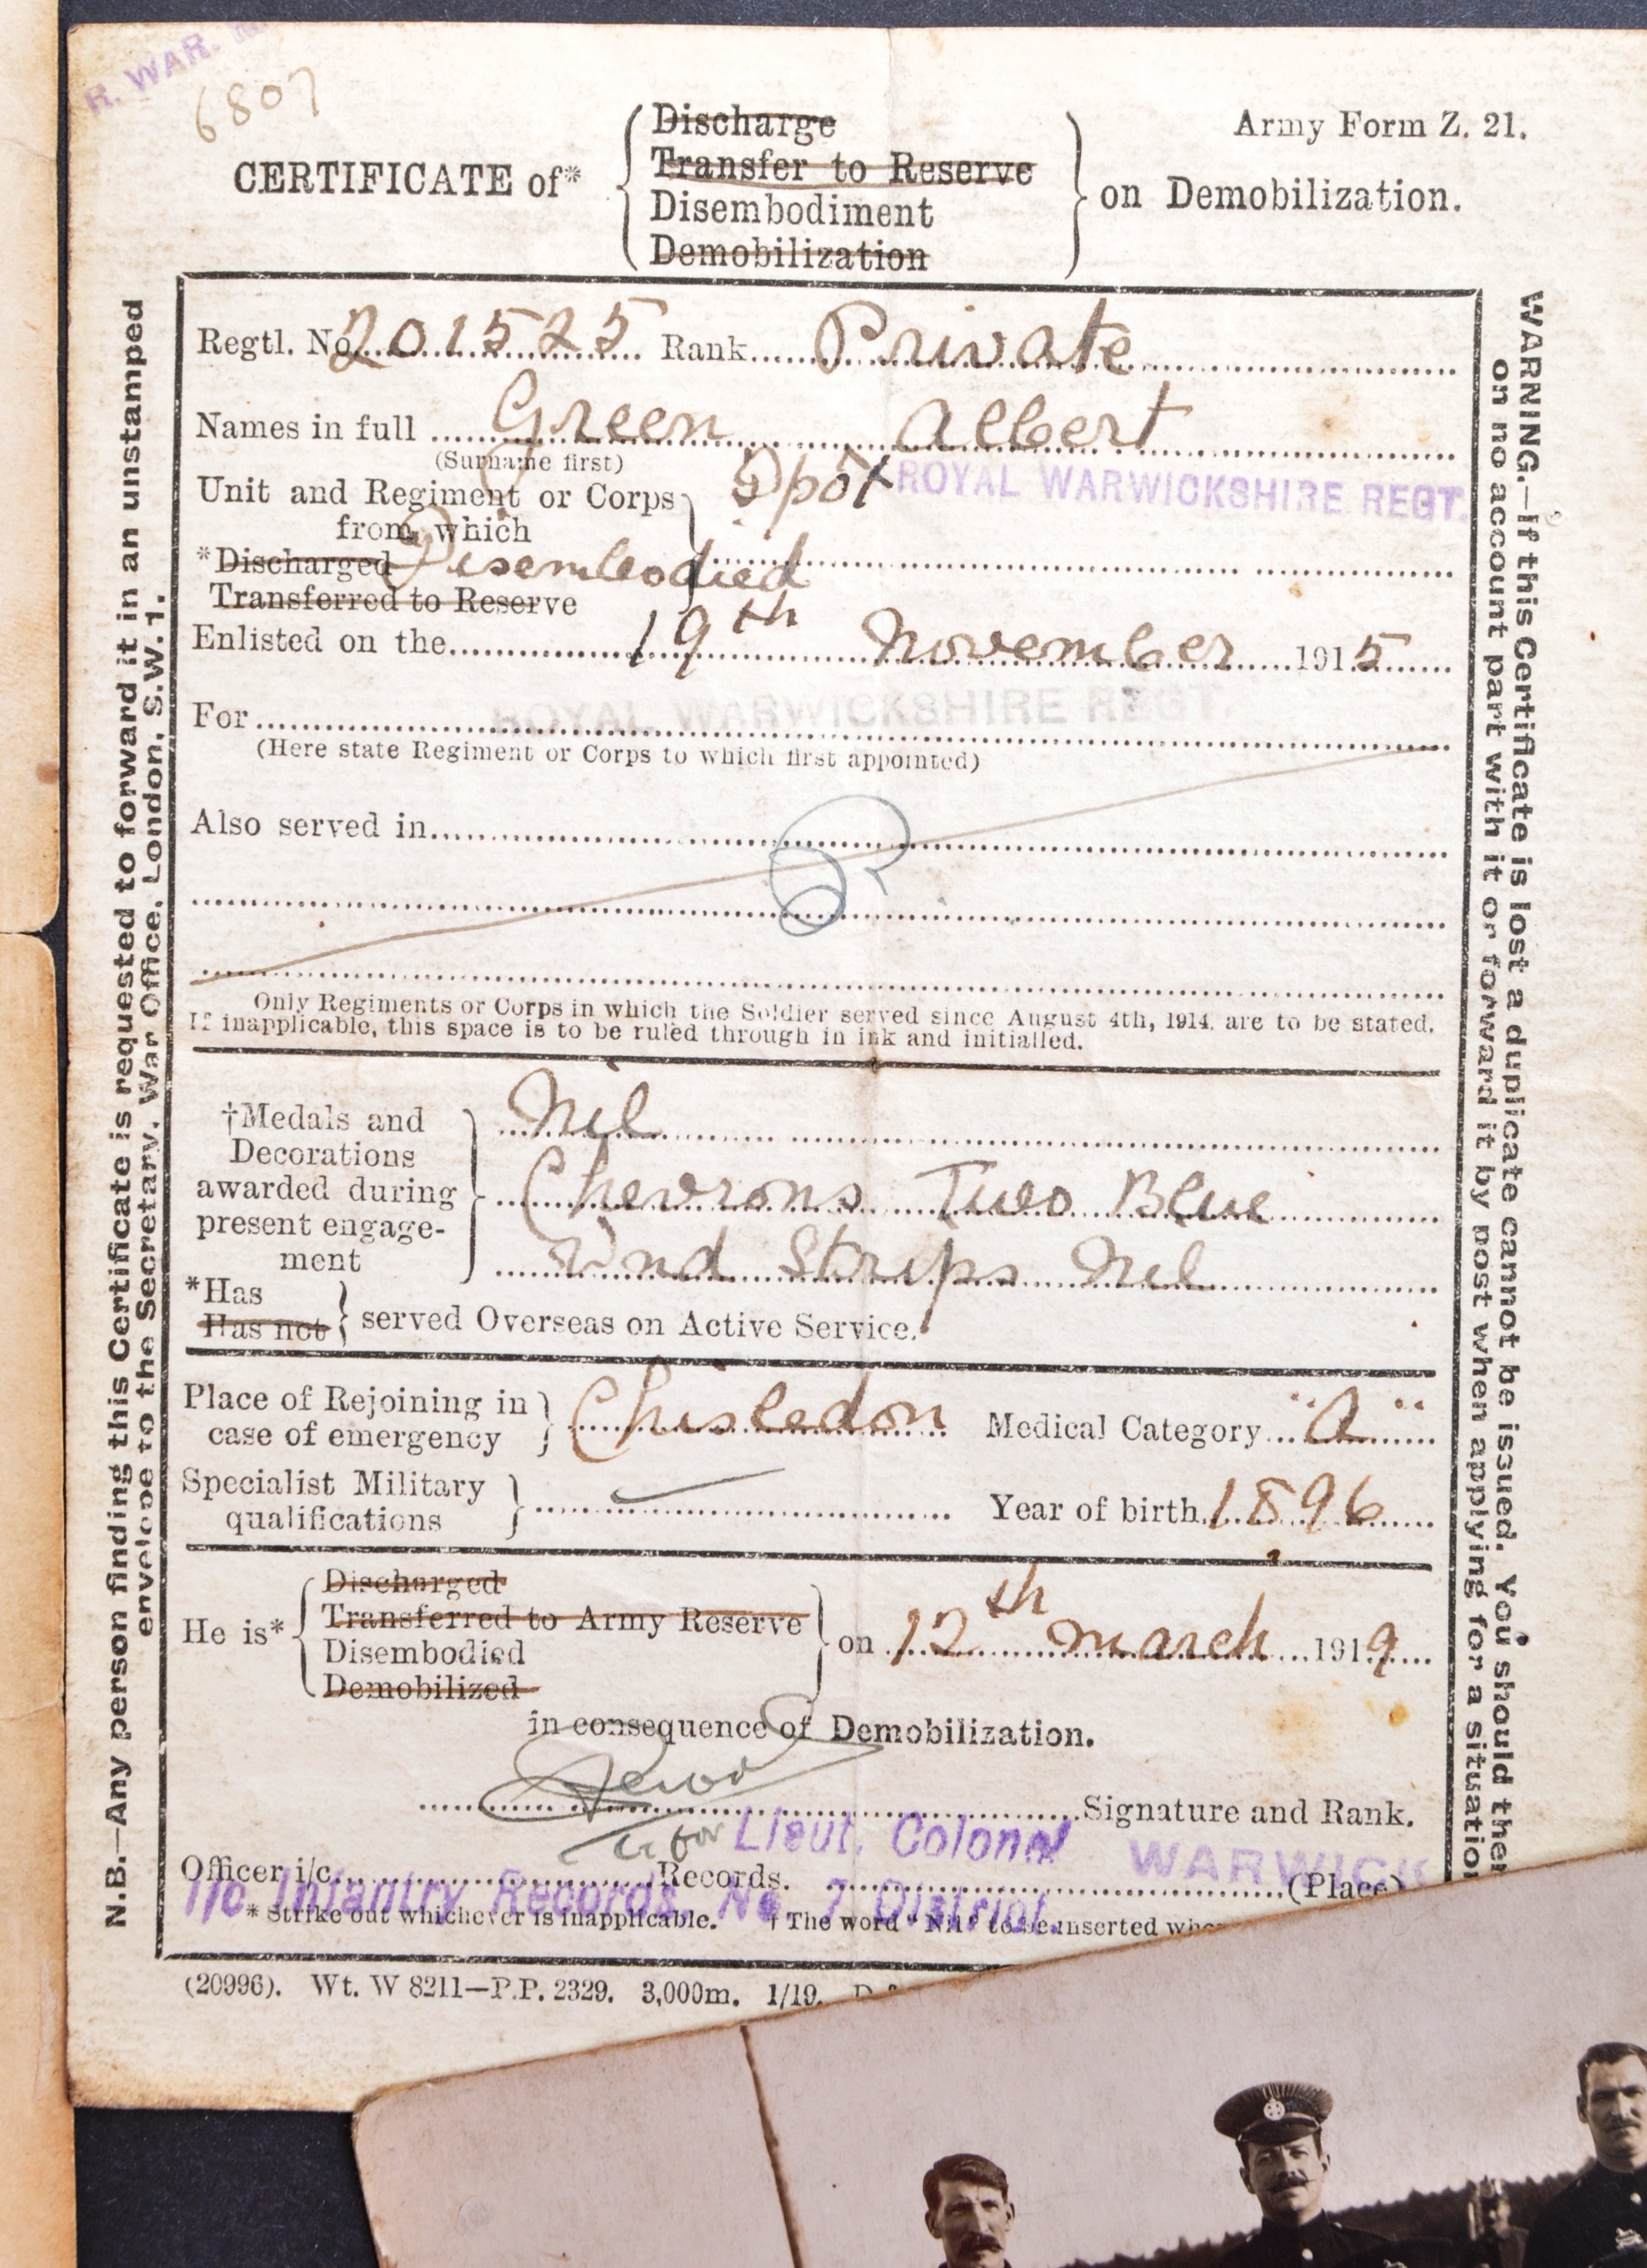 R. WAR.
6807
Army Form Z. 21.
Discharge
Transfer to Reserve
CERTIFICATE of* Disembodiment on Demobilization.
Demobilization
Regtl. No. 201525 Rank Private
Names in full Green Albert
(Surname first)
Unit and Regiment or Corps Dpot ROYAL WARWICKSHIRE REGT.
from which
*Discharged Disembodied
Transferred to Reserve
Enlisted on the 19th November 1915
For ROYAL WARWICKSHIRE REGT
(Here state Regiment or Corps to which first appointed)
Also served in
Only Regiments or Corps in which the Soldier served since August 4th, 1914, are to be stated.
If inapplicable, this space is to be ruled through in ink and initialled.
†Medals and Nil
Decorations
awarded during Chevrons Two Blue
present engage-
ment Wnd Strips Nil
*Has
Has not served Overseas on Active Service.
Place of Rejoining in
case of emergency Chisledon Medical Category "A"
Specialist Military
qualifications Year of birth 1896
Discharged
Transferred to Army Reserve
He is* Disembodied on 12th March 1919
Demobilized
in consequence of Demobilization.
Signature and Rank.
for Lieut. Colonel
Officer i/c Records. WARWICK (Place)
I/c Infantry Records, No 7 District.
* Strike out whichever is inapplicable. † The word "Nil" to be inserted
(20996). Wt. W 8211—P.P. 2329. 3,000m. 1/19.
N.B.—Any person finding this Certificate is requested to forward it in an unstamped
envelope to the Secretary, War Office, London, S.W. 1.
WARNING.—If this Certificate is lost a duplicate cannot be issued. You should
on no account part with it or forward it by post when applying for a situation